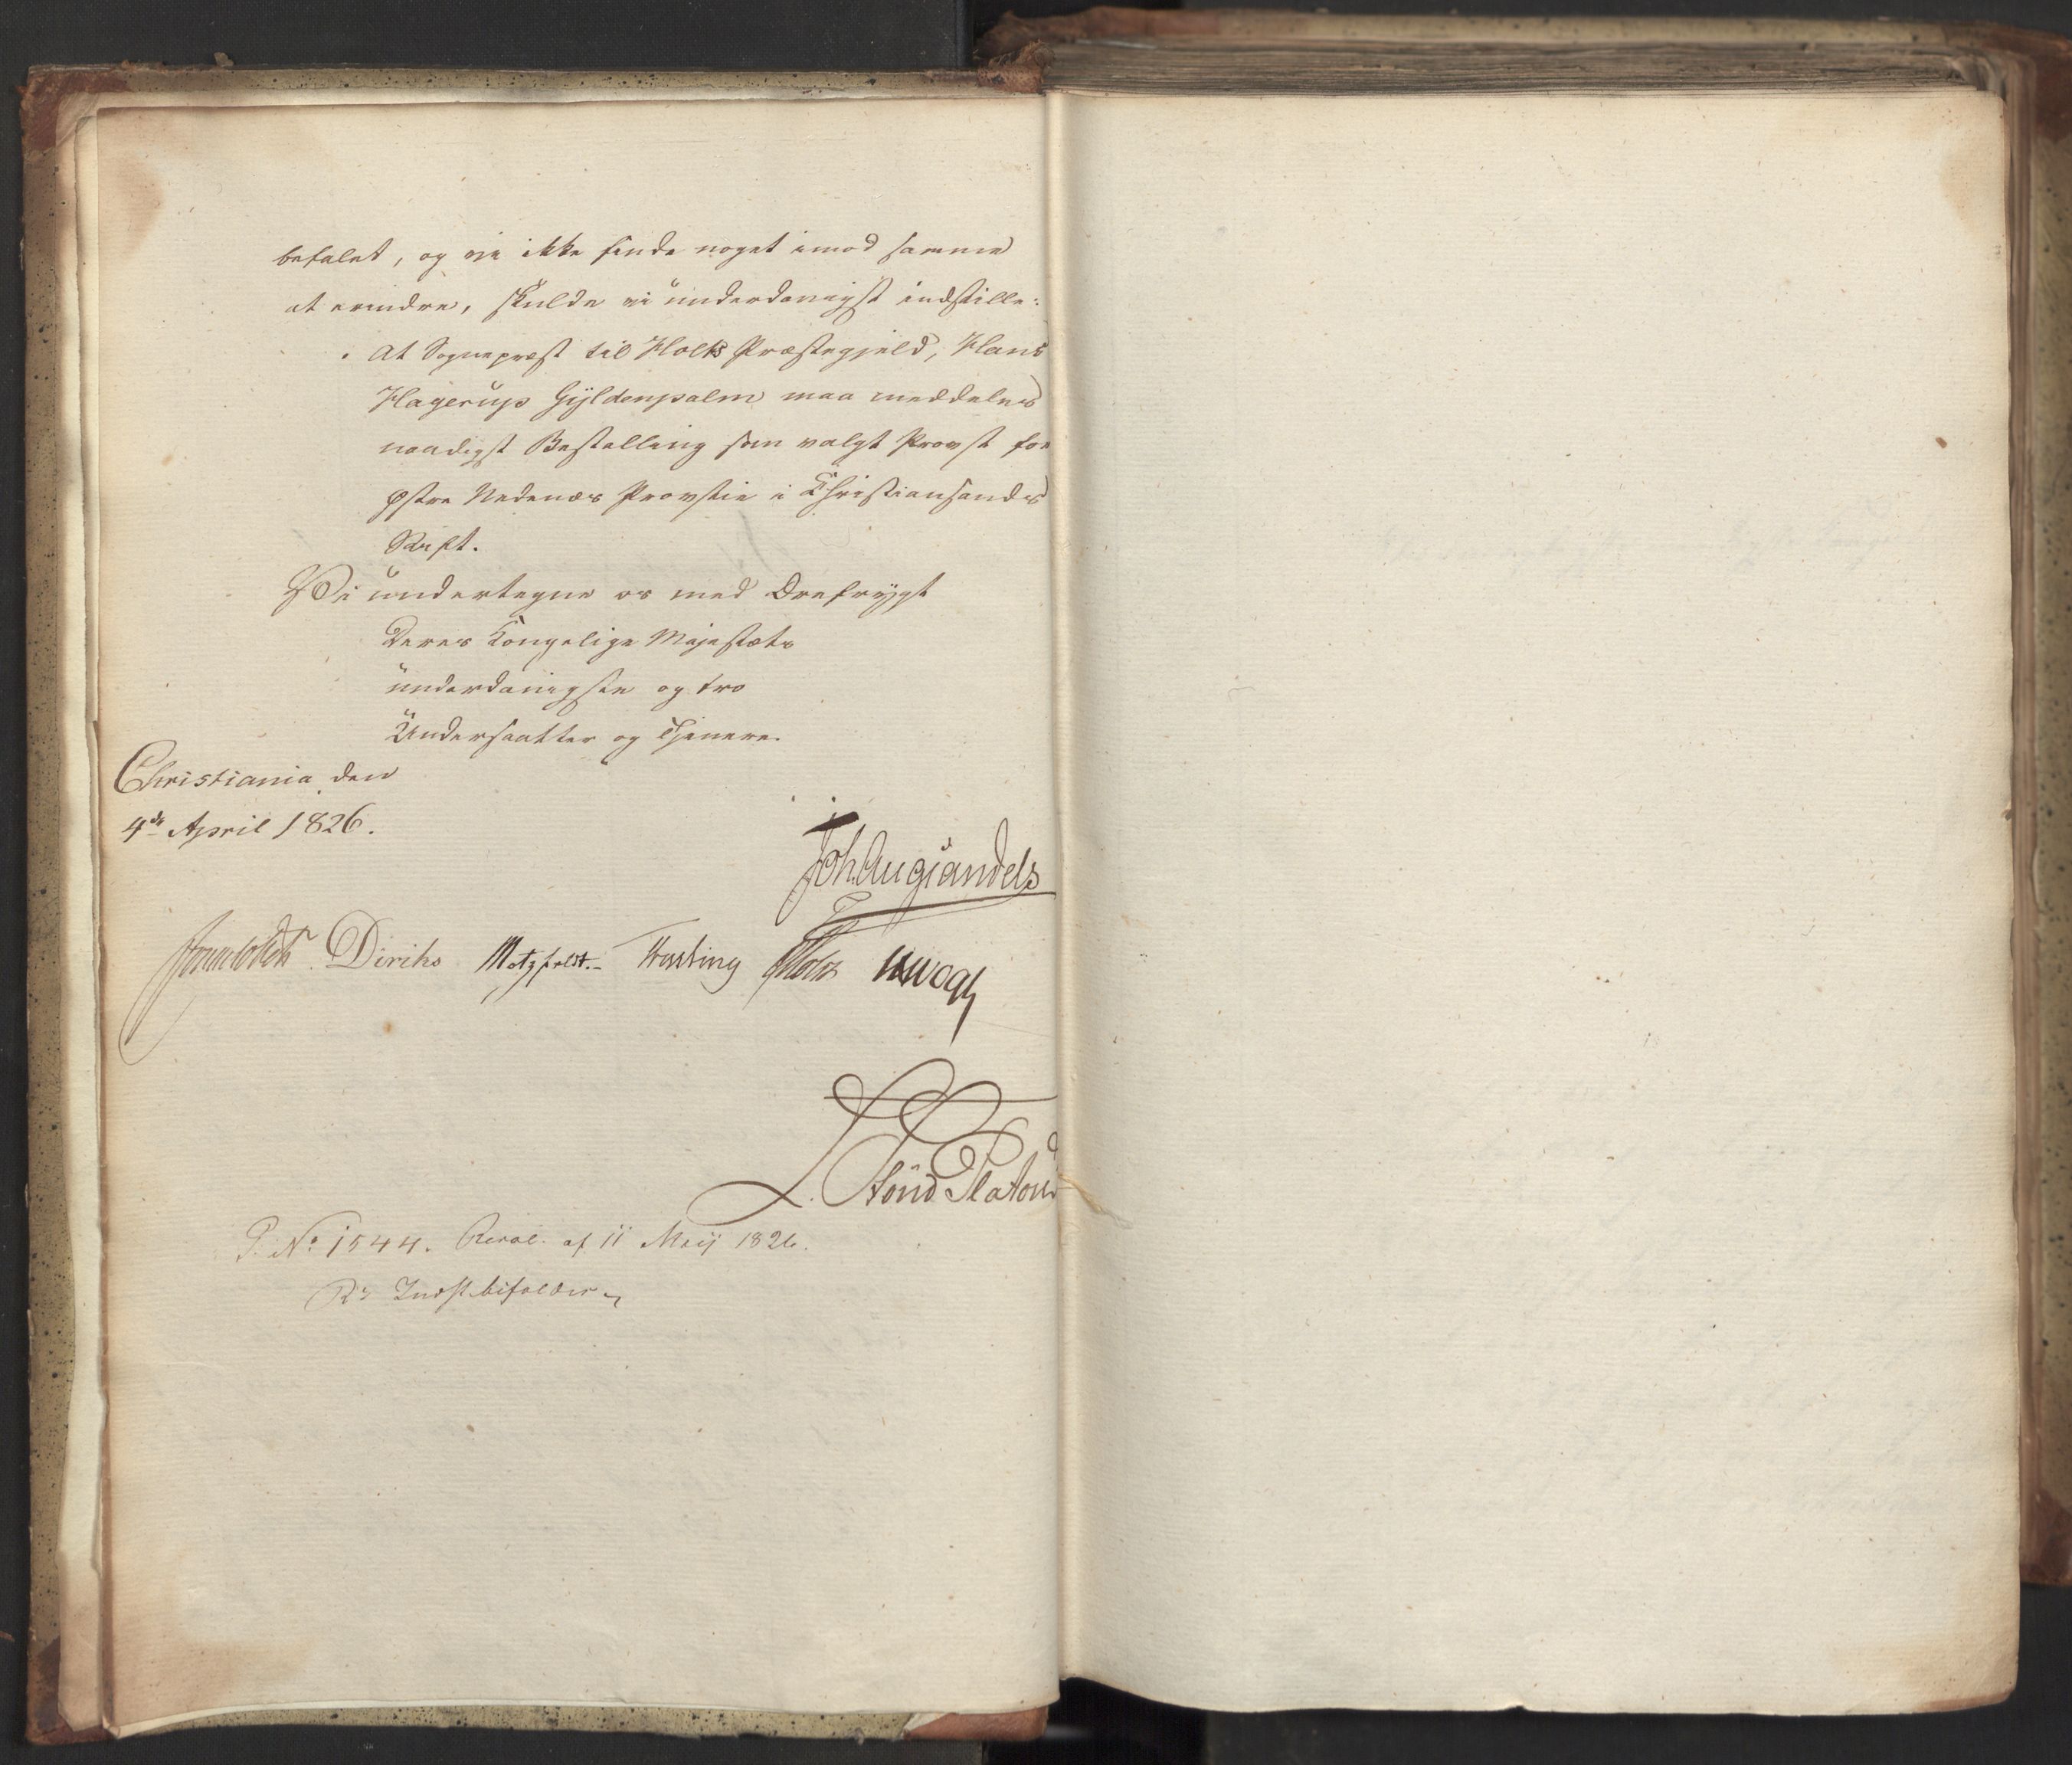 befalet, og vi ikke finde noget imod samme
at erindre, skulde vi underdanigst indstille:
At Sognepræst til Holts Præstegjeld, Hans
Hagerup Gyldenpalm maa meddeles
naadigst Bestalling som valgt Provst for
Østre Nedenæs Provstie i Christiansands
Stift.
Vi undertegne os med Ærefrygt
Deres Kongelige Majestæts
underdanigste og tro
Undersaatter og Tjenere.
Christiania den
4de April 1826.
Joh. Aug Sandels
Sommerfeldt Diriks Motzfeldt. Krefting Holst U Vogt
L. Stoud Platou
P. No 1544. Resol. af 11 Maij 1826.
Rs Indst. bifaldes